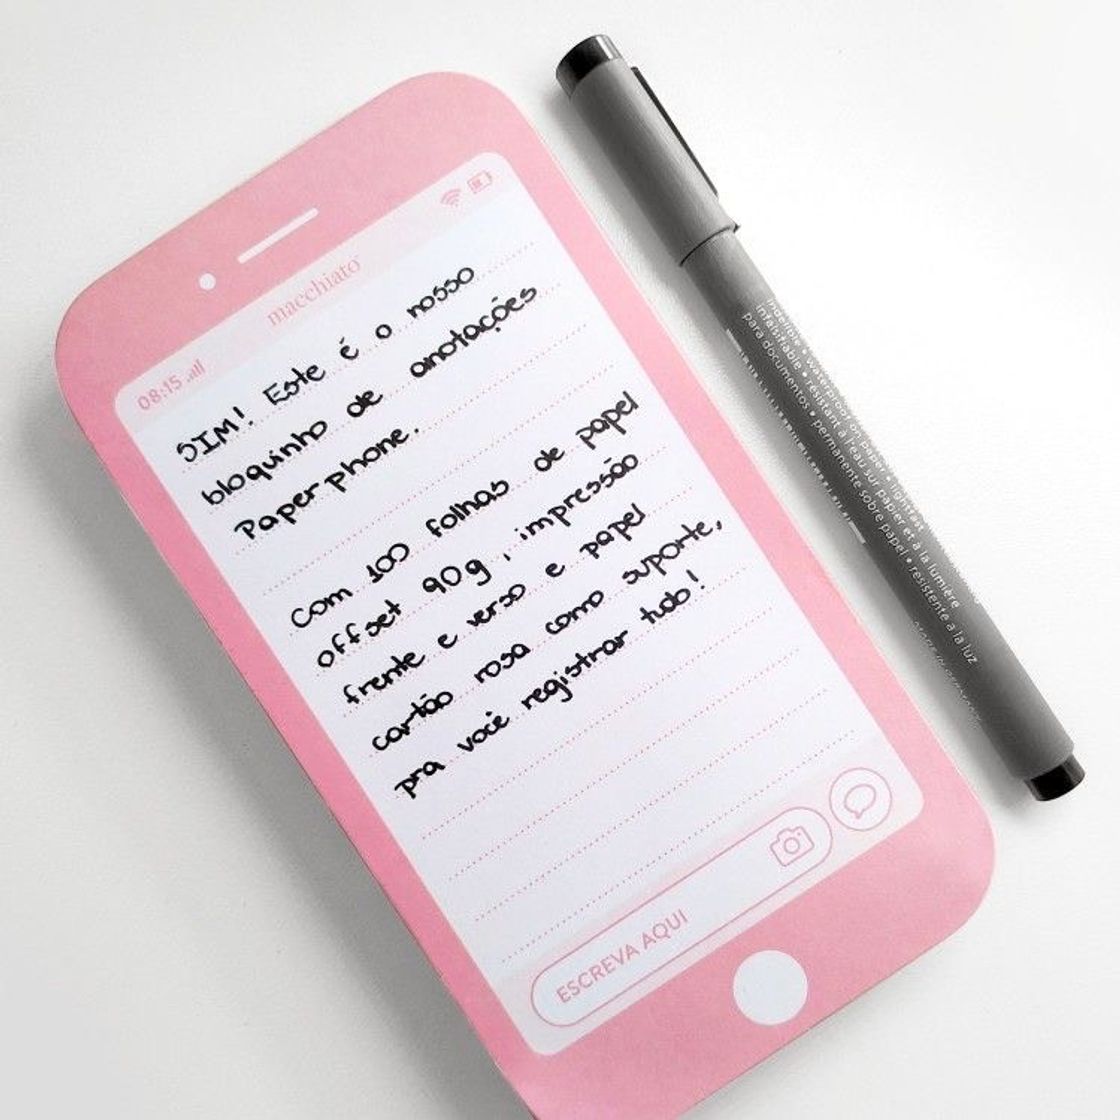 08:15
macchiato
SIM! Este é o nosso
bloquinho de anotações
Paper phone.
Com 100 folhas de papel
offset 90g, impressão
frente e verso e papel
cartão rosa como suporte,
pra você registrar tudo!
ESCREVA AQUI
indelible • waterproof on paper • lightfast
infalsifiable • résistant à l'eau sur papier et à la lumière
para documentos • permanente sobre papel • resistente a la luz